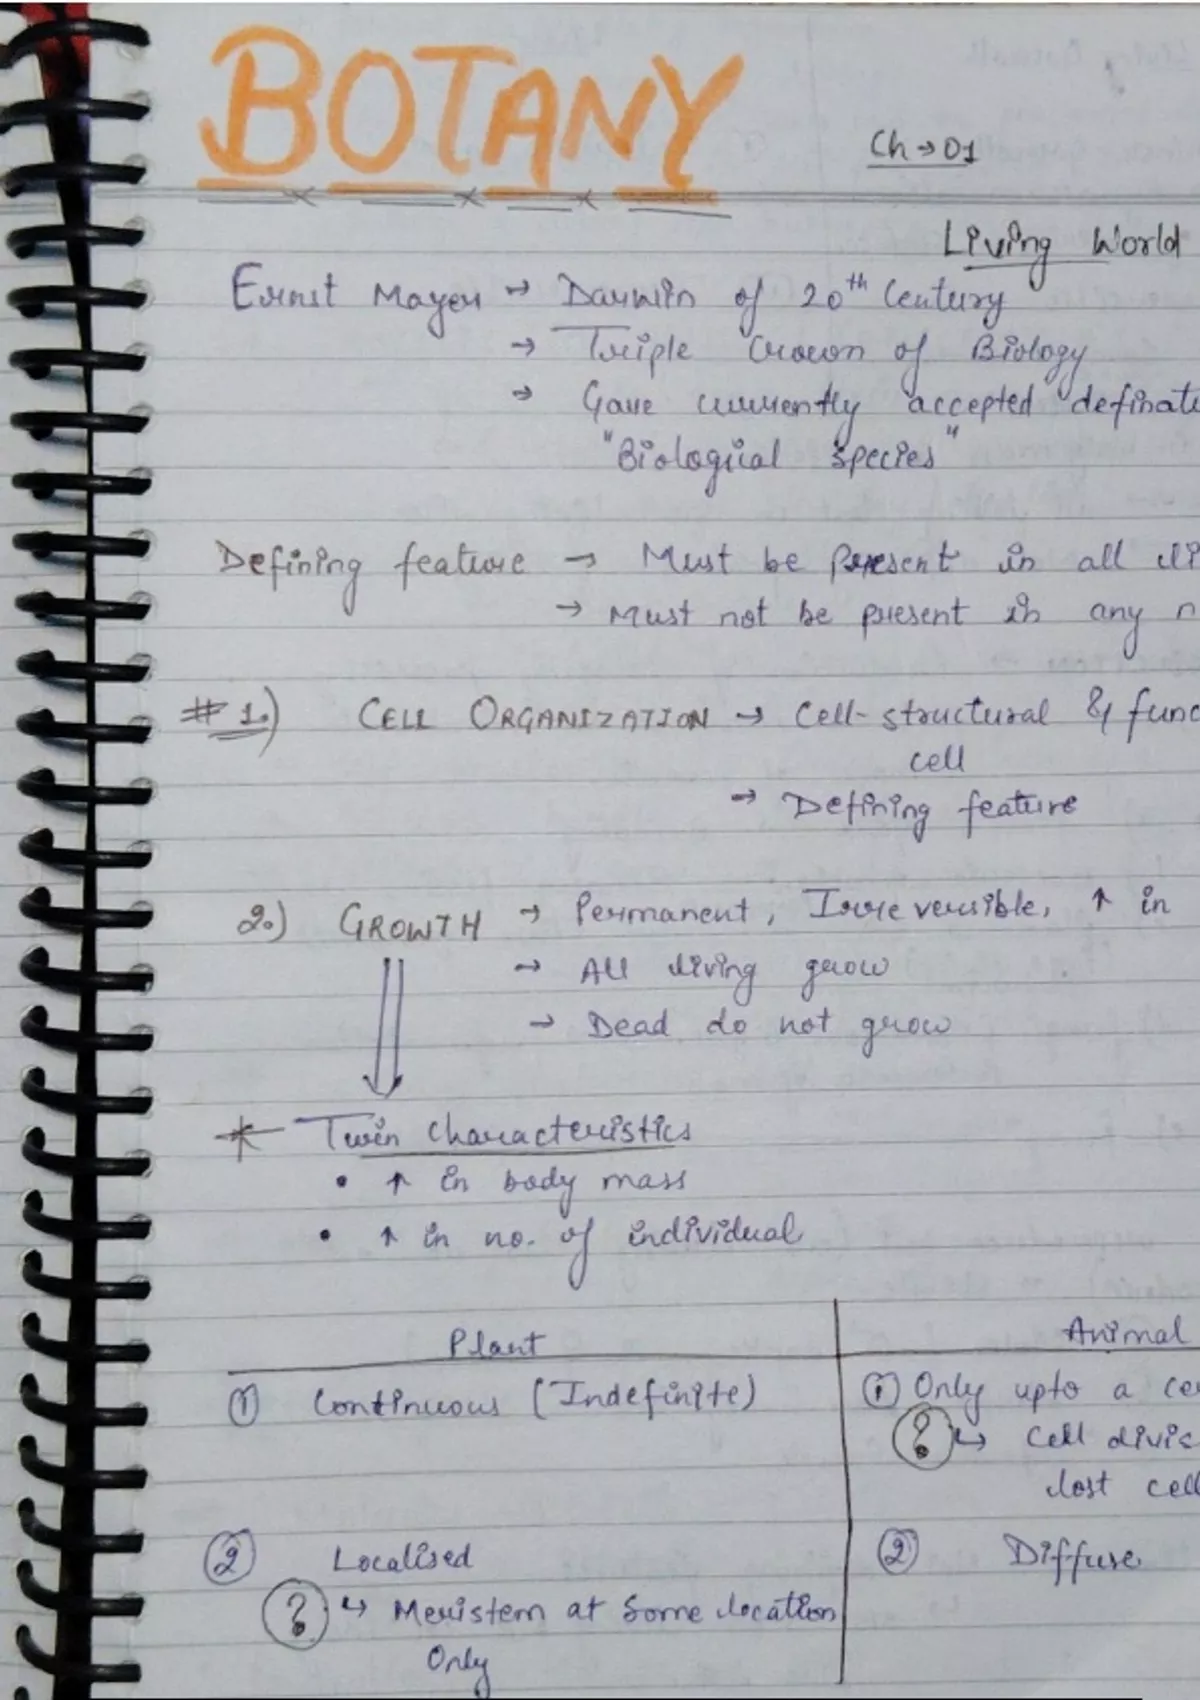 BOTANY
Ch → 01
Living World
Ernst Mayer → Darwin of 20th Century
→ Triple Crown of Biology
→ Gave currently accepted definat
"Biological species"
Defining feature → Must be present in all li
→ Must not be present in any n
# 1.) CELL ORGANIZATION → Cell-structural & func
cell
→ Defining feature
2.) GROWTH → Permanent, Irreversible, ↑ in
→ All living grow
→ Dead do not grow
* Twin characteristics
• ↑ in body mass
• ↑ in no. of individual
Plant Animal
① Continuous (Indefinite) ① Only upto a ce
? ↳ Cell divis
lost cell
② Localised ② Diffuse
? ↳ Meristem at some location
Only